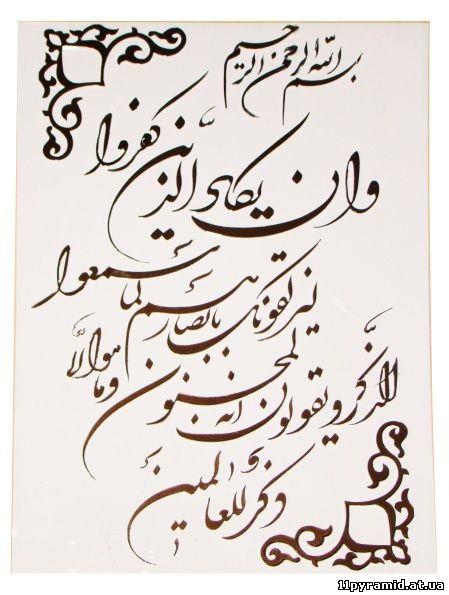 بسم الله الرحمن الرحیم
وان یکاد الذین کفروا
لیزلقونک بابصارهم لما سمعوا
الذکر و یقولون انه لمجنون وما هو الا
ذکر للعالمین
11pyramid.at.ua